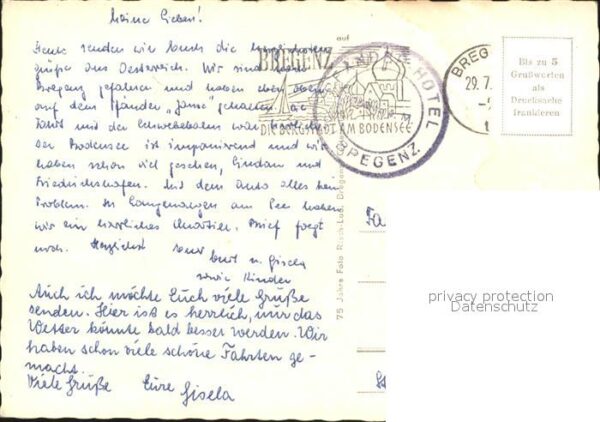 Meine Lieben!
Heute senden wir Euch die herzlichsten
Grüße aus Oesterreich. Wir sind nach
Bregenz gefahren und haben eben oben
auf dem Pfänder „Jause" gehalten. Die
Fahrt mit der Schwebebahn war herrlich.
Der Bodensee ist imponierend und wir
haben schon viel gesehen, Lindau und
Friedrichshafen. Mit dem Auto alles kein
Problem. In Langenargen am See haben
wir ein herrliches Quartier. Brief folgt
noch. Herzlichst Eure
Kurt u. Gisela
sowie Kinder
Auch ich möchte Euch viele Grüße
senden. Hier ist es herrlich, nur das
Wetter könnte bald besser werden. Wir
haben schon viele schöne Fahrten ge-
macht.
Viele Grüße Eure
Gisela
auf
BREGENZ
DIE BERGSTADT AM BODENSEE
HOTEL
BREGENZ
BREG
29.7.
Bis zu 5
Grußworten
als
Drucksache
frankieren
75 Jahre Foto Risch-Lau, Bregenz
Fa
privacy protection
Datenschutz